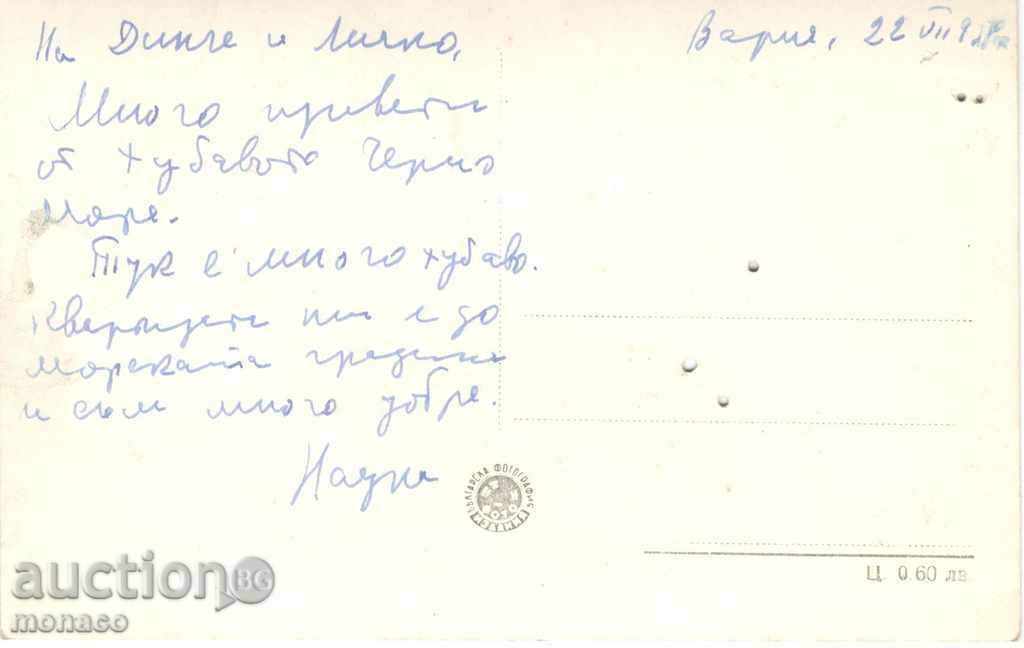 На Динче и Личко,
Варна, 22 VII 9
Много привети
от хубавото Черно
море.
Тук е много хубаво.
Квартирата ни е до
морската градина
и съм много добре.
БЪЛГАРСКА ФОТОГРАФИЯ
Ц. 0.60 лв.
auction BG
monaco